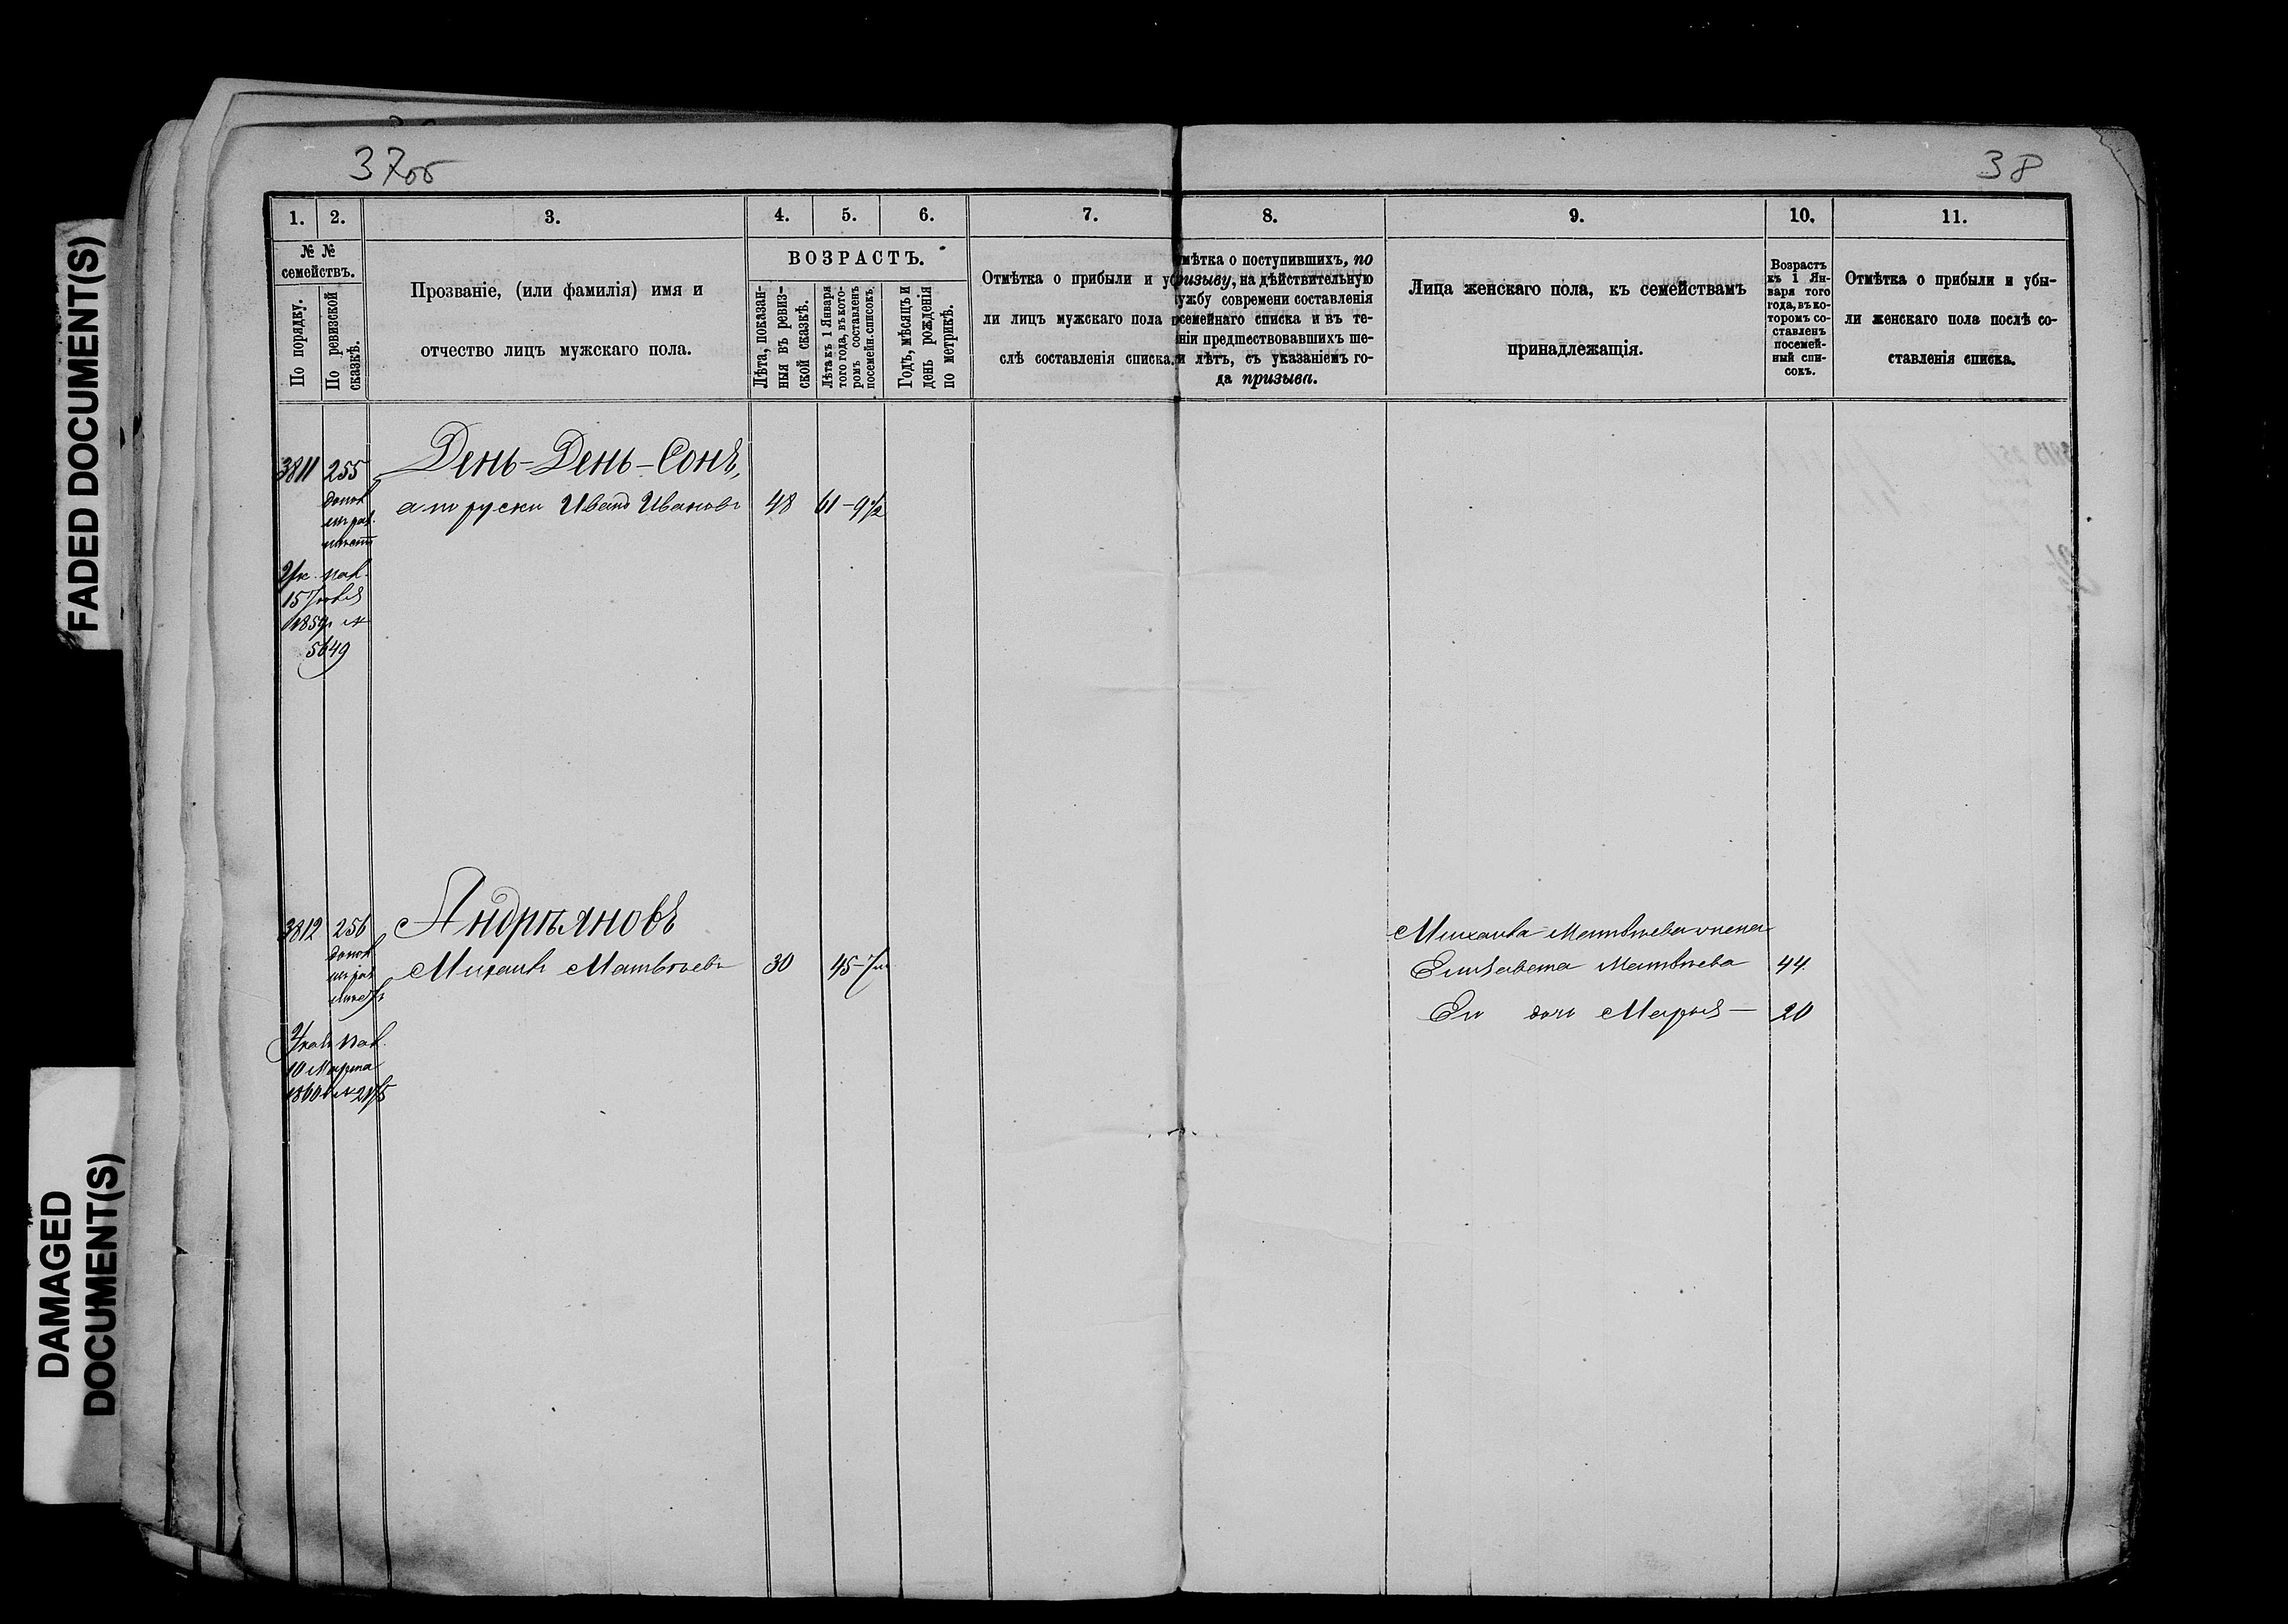 FADED DOCUMENT(S)
DAMAGED
DOCUMENT(S)
37об
38
1. 2. 3. 4. 5. 6. 7. 8. 9. 10. 11.
№ №
семействъ.
По порядку.
По ревизской
сказкѣ.
Прозваніе, (или фамилія) имя и
отчество лицъ мужскаго пола.
ВОЗРАСТЪ.
Лѣта, показан-
ныя въ ревиз-
ской сказкѣ.
Лѣта къ 1 Января
того года, въ кото-
ромъ составленъ
посемейн. списокъ.
Годъ, мѣсяцъ и
день рожденія
по метрикѣ.
Отмѣтка о прибыли и у
ли лицъ мужскаго пола п
слѣ составленія списка.
мѣтка о поступившихъ, по
ризыву, на дѣйствительную
ужбу современи составленія
семейнаго списка и въ те-
ніи предшествовавшихъ ше-
и лѣтъ, съ указаніемъ го-
да призыва.
Лица женскаго пола, къ семействамъ
принадлежащія.
Возрастъ
къ 1 Ян-
варя того
года, въ ко-
торомъ со-
ставленъ
посемей-
ный спи-
сокъ.
Отмѣтка о прибыли и убы-
ли женскаго пола послѣ со-
ставленія списка.
3811 255 День-День-Сонъ,
допол
а по руски Иванъ Ивановъ 48 61-9/2
15 Іюля
1859г №
5649
3812 256 Андрѣяновъ
допол
Михаилъ Матвѣевъ 30 45
Михаила Матвѣева жена
Елизавета Матвѣева 44
Ея дочь Марья — 20
10 Марта
1860 №